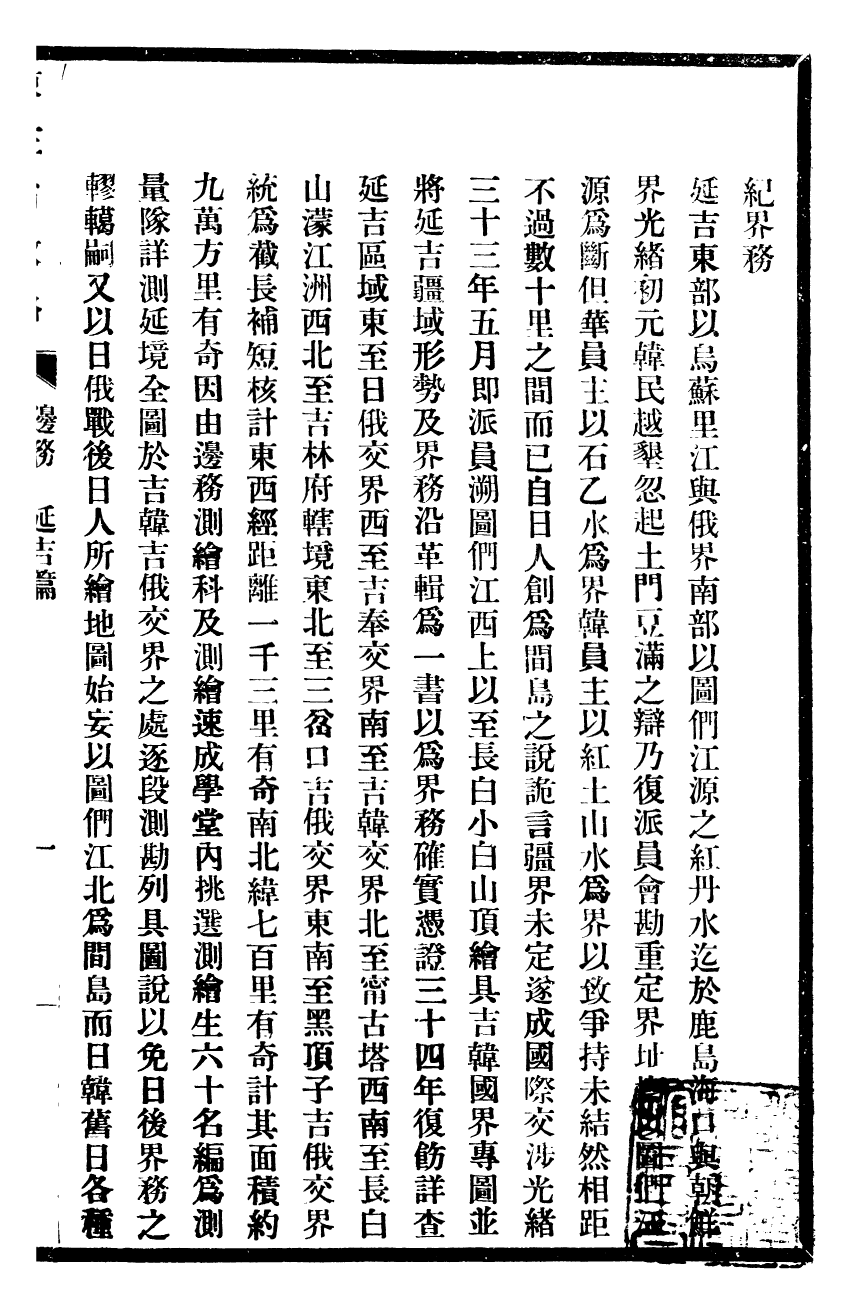 紀界務
延吉東部以烏蘇里江與俄界南部以圖們江源之紅丹水迄於鹿島海口與朝鮮
界光緒初元韓民越墾忽起土門豆滿之辯乃復派員會勘重定界址以圖們江
源爲斷但華員主以石乙水爲界韓員主以紅土山水爲界以致爭持未結然相距
不過數十里之間而已自日人創爲間島之說詭言疆界未定遂成國際交涉光緒
三十三年五月即派員溯圖們江西上以至長白小白山頂繪具吉韓國界專圖並
將延吉疆域形勢及界務沿革輯爲一書以爲界務確實憑證三十四年復飭詳查
延吉區域東至日俄交界西至吉奉交界南至吉韓交界北至甯古塔西南至長白
山濛江洲西北至吉林府轄境東北至三岔口吉俄交界東南至黑頂子吉俄交界
統爲截長補短核計東西經距離一千三里有奇南北緯七百里有奇計其面積約
九萬方里有奇因由邊務測繪科及測繪速成學堂內挑選測繪生六十名編爲測
量隊詳測延境全圖於吉韓吉俄交界之處逐段測勘列具圖說以免日後界務之
轇轕嗣又以日俄戰後日人所繪地圖始妄以圖們江北爲間島而日韓舊日各種
邊務 延吉篇
一